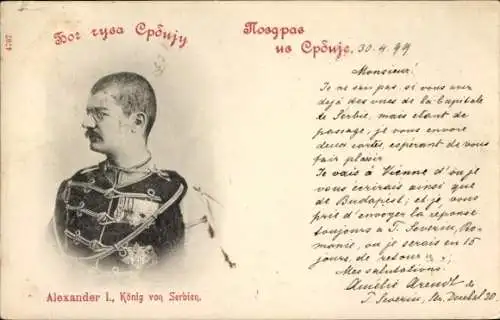 4787
Бог чува Србију
Поздрав
из Србије, 30.4.99
Monsieur!
Je ne sais pas, si vous avez
déjà des vues de la Capitale
de Serbie, mais étant de
passage, je vous envoie
deux cartes, espérant de vous
fair plaisir
Je vais à Vienne d'où je
vous écrirais ainsi que
de Budapest; et je vous
prie d'envoyer la réponse
toujours a T. Severin, Ro-
manie, ou je serais en 15
jours, de retour.
Mes salutations.
Amélie Arendt
T. Severin, Str. Decebal 20.
Alexander I., König von Serbien.